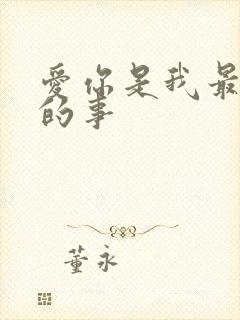 爱你是我最
的事
董永